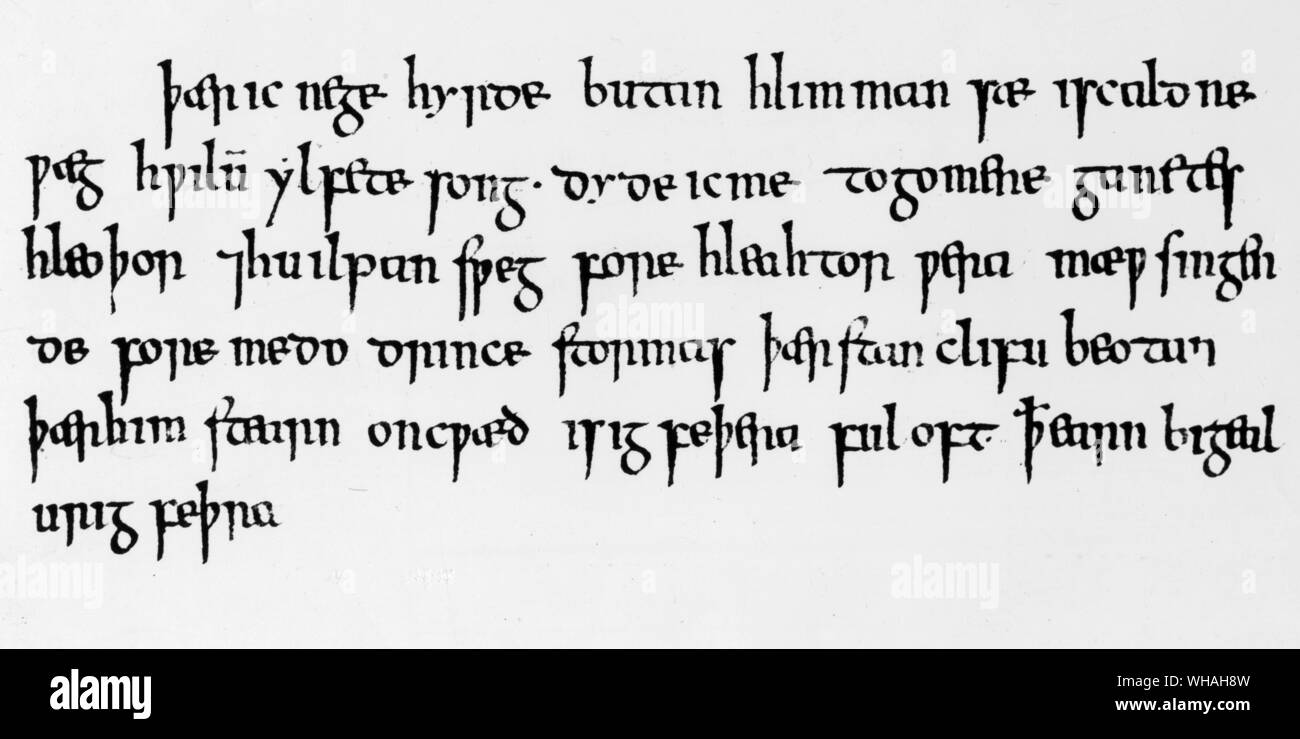 þær ic nege hyrde butan hlimman sæ iscald ne
ƿæg hƿilū ẏlfete song· dyde icme togomene ganetes
hleoþor ⁊huilpan sƿeg fore hleahtor ƿera mæƿ singen
de fore medo drince stormas þær stan clifu beotan
þærhim stearn oncƿæð isig feþera ful oft· ꝥ earn bigeal
urig feþra
alamy
Image ID: WHAH8W
www.alamy.com